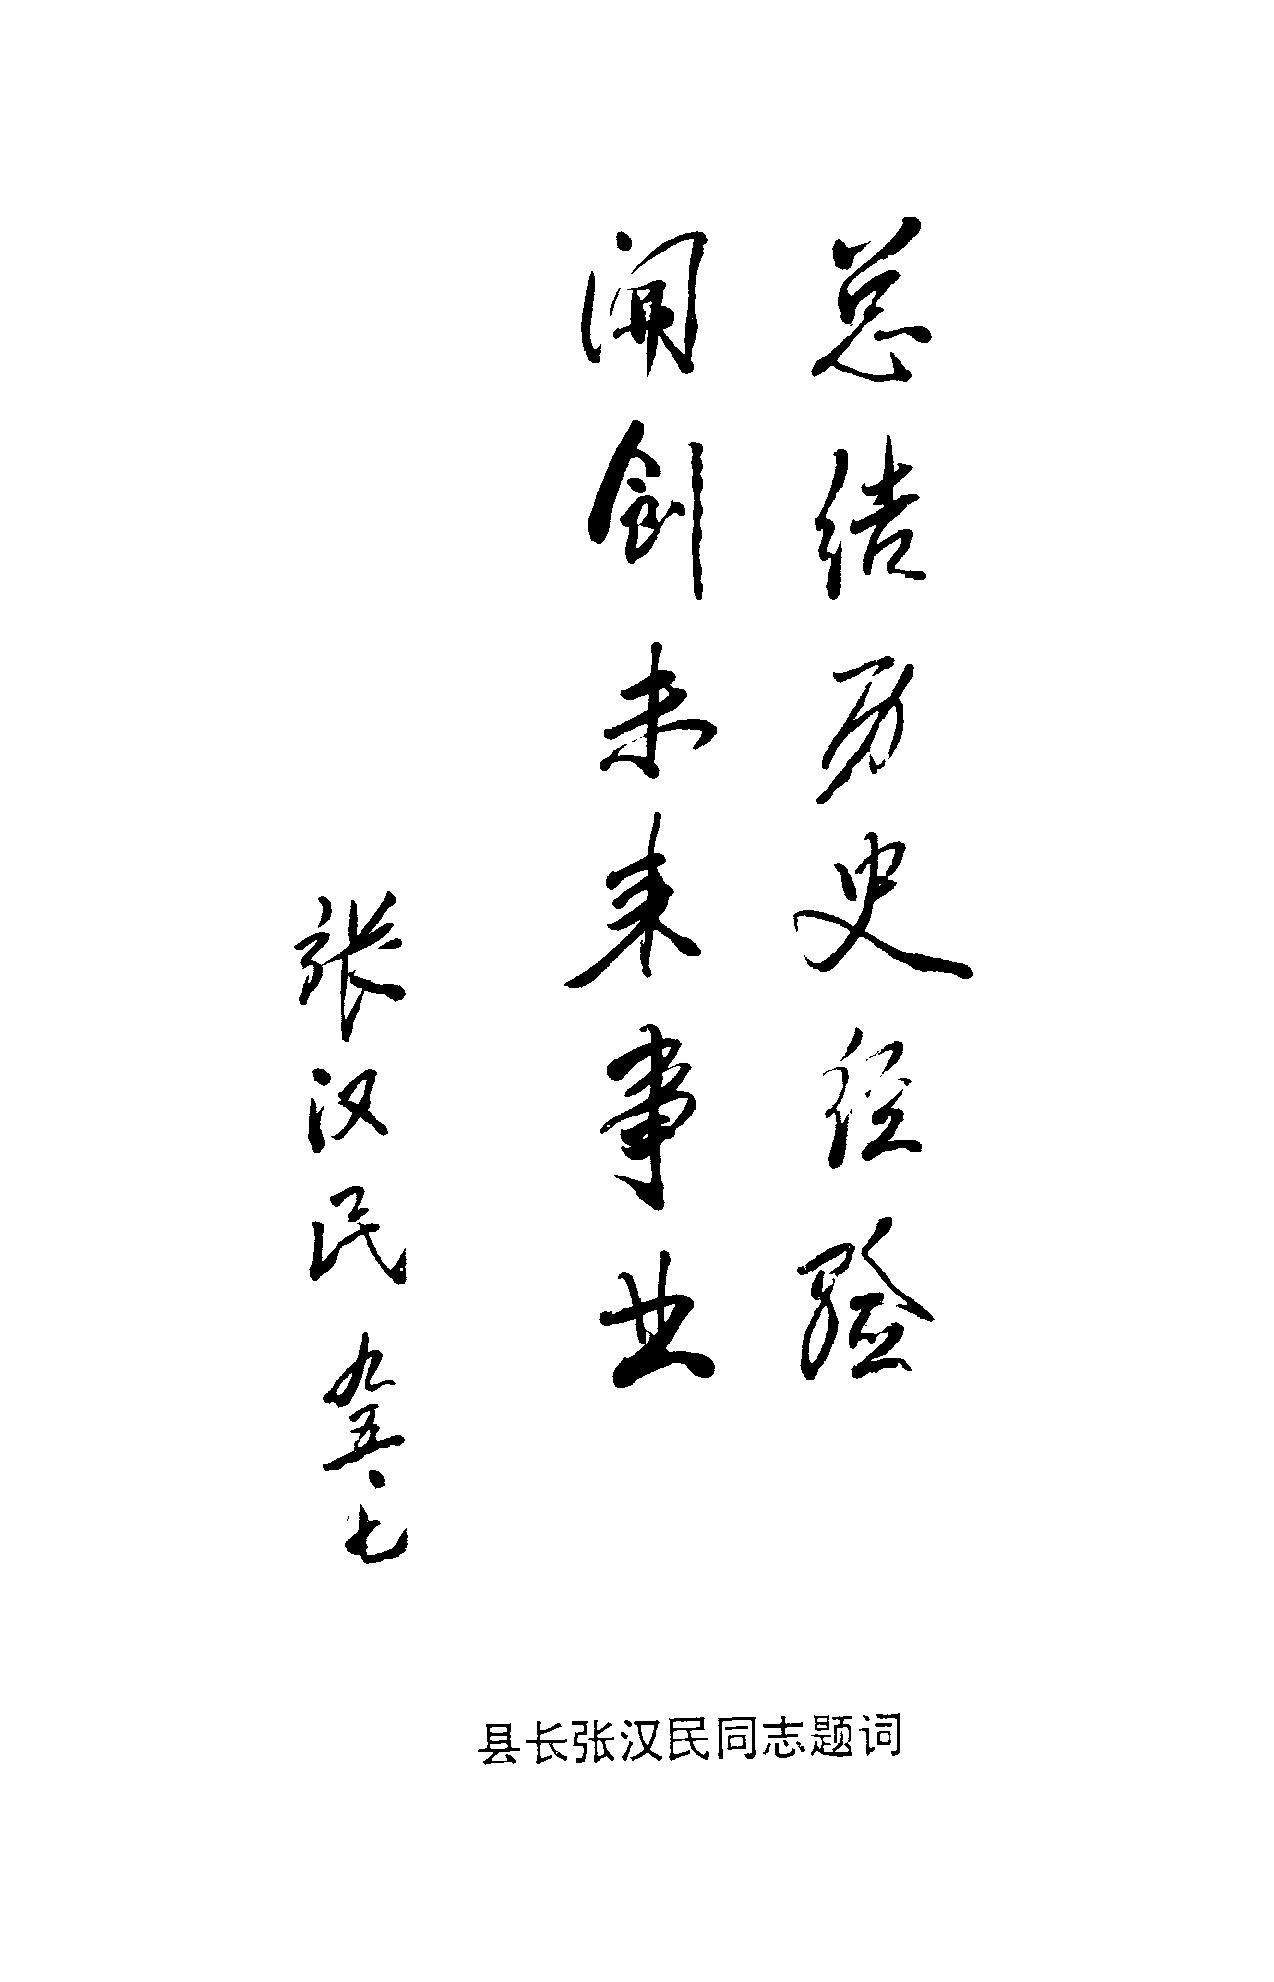 总结历史经验
开创未来事业
张汉民 九五、七
县长张汉民同志题词